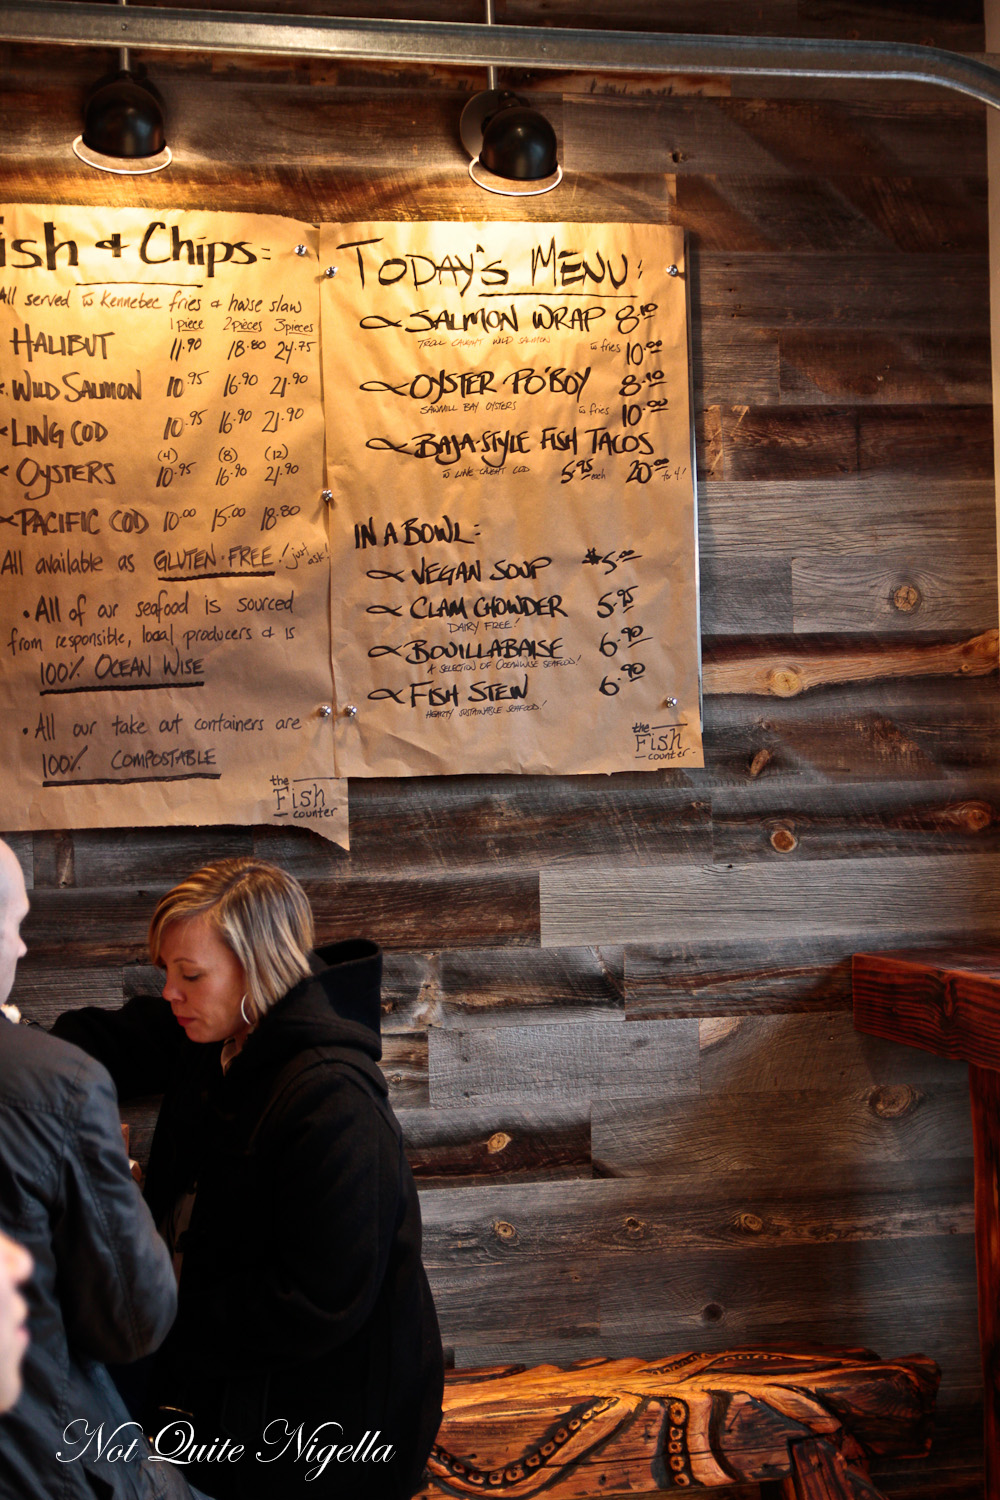 ish & Chips:
All served w Kennebec fries & house slaw
1 piece 2 pieces 3 pieces
HALIBUT 11.90 18.80 24.75
WILD SALMON 10.95 16.90 21.90
LING COD 10.95 16.90 21.90
(4) (8) (12)
OYSTERS 10.95 16.90 21.90
PACIFIC COD 10.00 15.00 18.80
All available as GLUTEN-FREE! just ask!
• All of our seafood is sourced
from responsible, local producers & is
100% OCEAN WISE
• All our take out containers are
100% COMPOSTABLE
the
Fish
counter
TODAY'S MENU:
SALMON WRAP 8.10
TROLL CAUGHT WILD SALMON w fries 10.00
OYSTER PO'BOY 8.10
SAWMILL BAY OYSTERS w fries 10.00
BAJA-STYLE FISH TACOS
w LINE CAUGHT COD 5.95 each 20.00 for 4!
IN A BOWL:
VEGAN SOUP $5.00
CLAM CHOWDER 5.95
DAIRY FREE!
BOUILLABAISE 6.90
A SELECTION OF OCEANWISE SEAFOOD!
FISH STEW 6.90
HEARTY SUSTAINABLE SEAFOOD!
the
Fish
counter
Not Quite Nigella